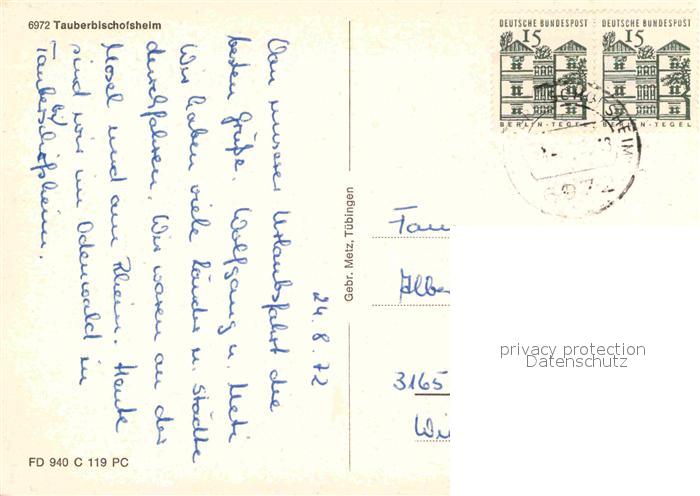 6972 Tauberbischofsheim
DEUTSCHE BUNDESPOST
15
BERLIN-TEGEL
DEUTSCHE BUNDESPOST
15
BERLIN-TEGEL
6972
24.8.72
Von unserer Urlaubsfahrt die
besten Grüße. Wolfgang u. Meti
Wir haben viele Länder u. Städte
durchfahren. Wir waren an der
Mosel und am Rhein. Heute
sind wir im Odenwald in
Tauberbischofsheim.
Gebr. Metz, Tübingen
Fam
Albe
3165
Wi
privacy protection
Datenschutz
FD 940 C 119 PC